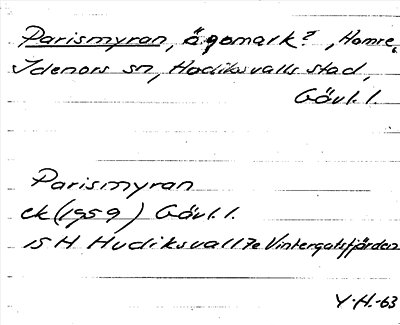 Parismyran, ägomark?, Hamre,
Idenors sn, Hudiksvalls stad,
Gävl. l.
Parismyran
ek (1959) Gävl. l.
15 H Hudiksvall 7e Vintergatsfjärden
Y.H.-63